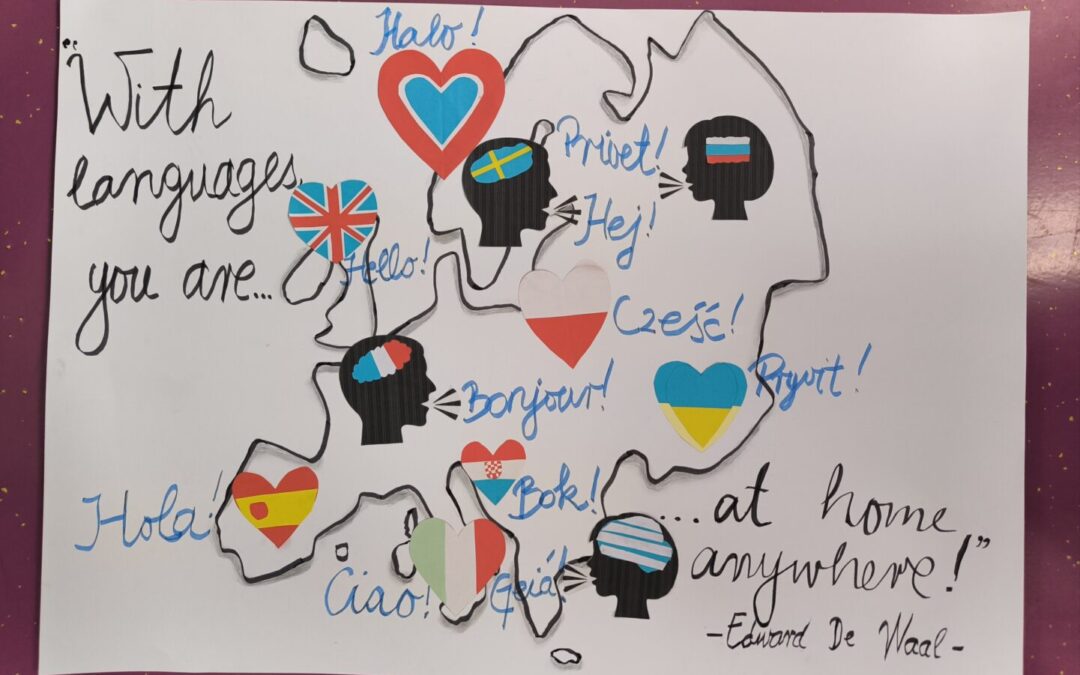 "With
languages,
you are...
Halo!
Privet!
Hej!
Hello!
Cześć!
Pryvit!
Bonjour!
Bok!
Hola!
Ciao!
Geiá!
...at home
anywhere!"
-Edward De Waal-